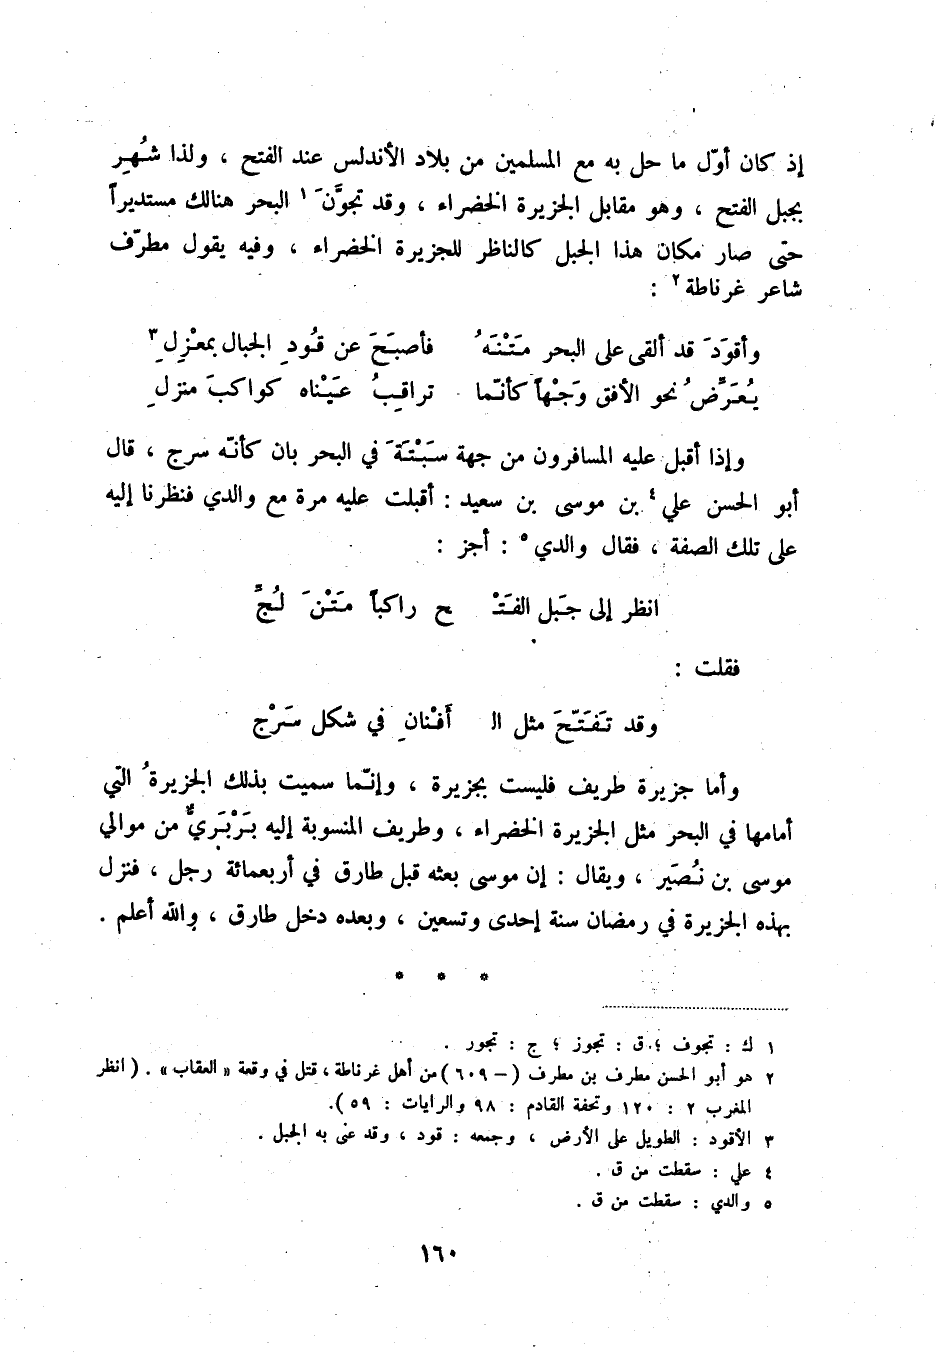 إذ كان أوّل ما حل به مع المسلمين من بلاد الأندلس عند الفتح ، ولذا شُهِر
بجبل الفتح ، وهو مقابل الجزيرة الخضراء ، وقد تجوَّنَ ١ البحر هنالك مستديراً
حتى صار مكان هذا الجبل كالناظر للجزيرة الخضراء ، وفيه يقول مطرّف
شاعر غرناطة ٢ :
وأقوَدَ قد ألقى على البحر مَتْنَهُ فأصبَحَ عن قُودِ الجبال بمعْزِلِ ٣
يُعَرِّضُ نحو الأفق وَجْهاً كأنّما تراقِبُ عَيْناه كواكبَ منزلِ
وإذا أقبل عليه المسافرون من جهة سَبْتَةَ في البحر بان كأنّه سرج ، قال
أبو الحسن علي ٤ بن موسى بن سعيد : أقبلت عليه مرة مع والدي فنظرنا إليه
على تلك الصفة ، فقال والدي ٥ : أجز :
انظر إلى جبَل الفَتْـ ـح راكباً مَتْنَ لُجِّ
فقلت :
وقد تَفَتّحَ مثل الـ أَفْنانِ في شكل سَرْج
وأما جزيرة طريف فليست بجزيرة ، وإنّما سميت بذلك الجزيرةُ التي
أمامها في البحر مثل الجزيرة الخضراء ، وطريف المنسوبة إليه بَرْبَريٌّ من موالي
موسى بن نُصَير ، ويقال : إن موسى بعثه قبل طارق في أربعمائة رجل ، فنزل
بهذه الجزيرة في رمضان سنة إحدى وتسعين ، وبعده دخل طارق ، والله أعلم .
* * *
١ ك : تجوف ؛ ق : تجوز ؛ ج : تجور .
٢ هو أبو الحسن مطرف بن مطرف ( – ٦٠٩ ) من أهل غرناطة ، قتل في وقعة « العقاب » . ( انظر
المغرب ٢ : ١٢٠ وتحفة القادم : ٩٨ والرايات : ٥٩ ).
٣ الأقود : الطويل على الأرض ، وجمعه : قود ، وقد عنى به الجبل .
٤ علي : سقطت من ق .
٥ والدي : سقطت من ق .
١٦٠